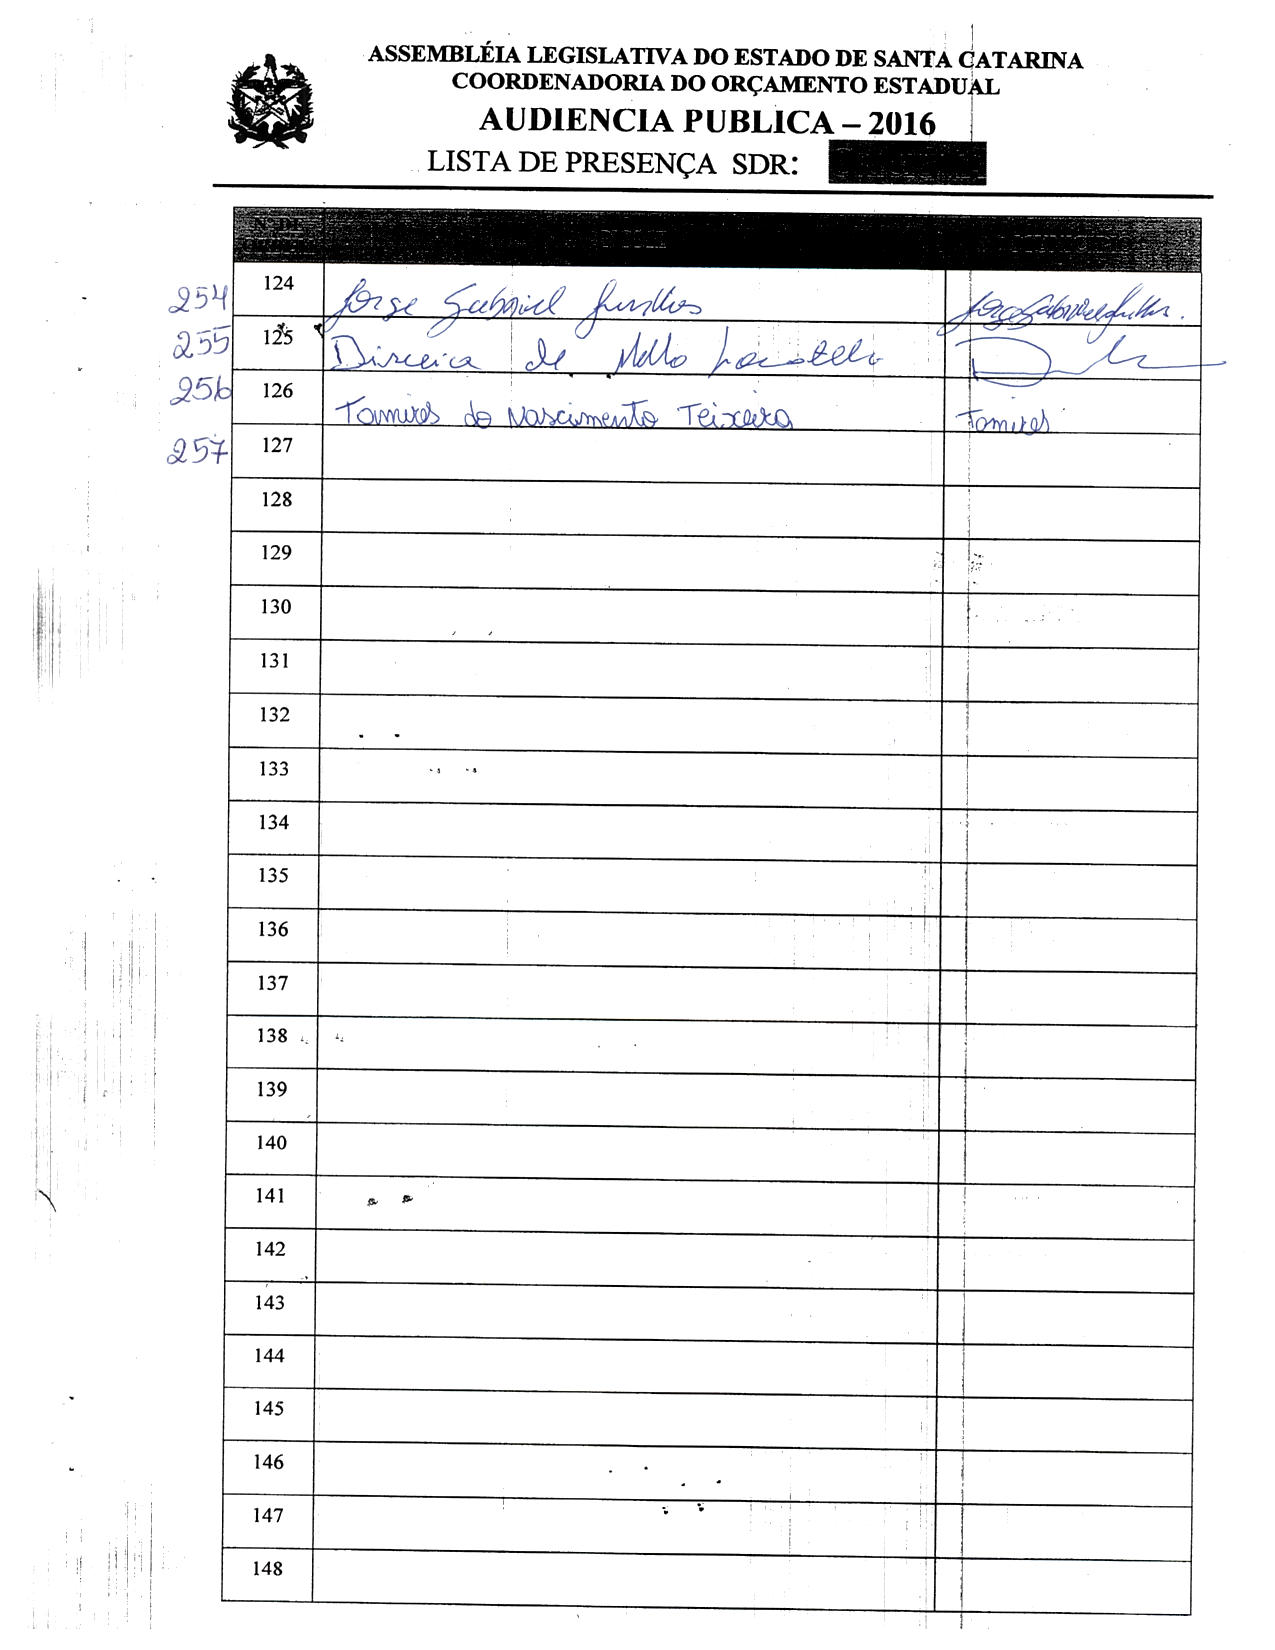 ASSEMBLÉIA LEGISLATIVA DO ESTADO DE SANTA CATARINA
COORDENADORIA DO ORÇAMENTO ESTADUAL
AUDIENCIA PUBLICA – 2016
LISTA DE PRESENÇA SDR:
254 124 Jorge Gabriel
255 125 de Mello
256 126 Tamires do Nascimento Teixeira Tamires
257 127
128
129
130
131
132
133
134
135
136
137
138
139
140
141
142
143
144
145
146
147
148